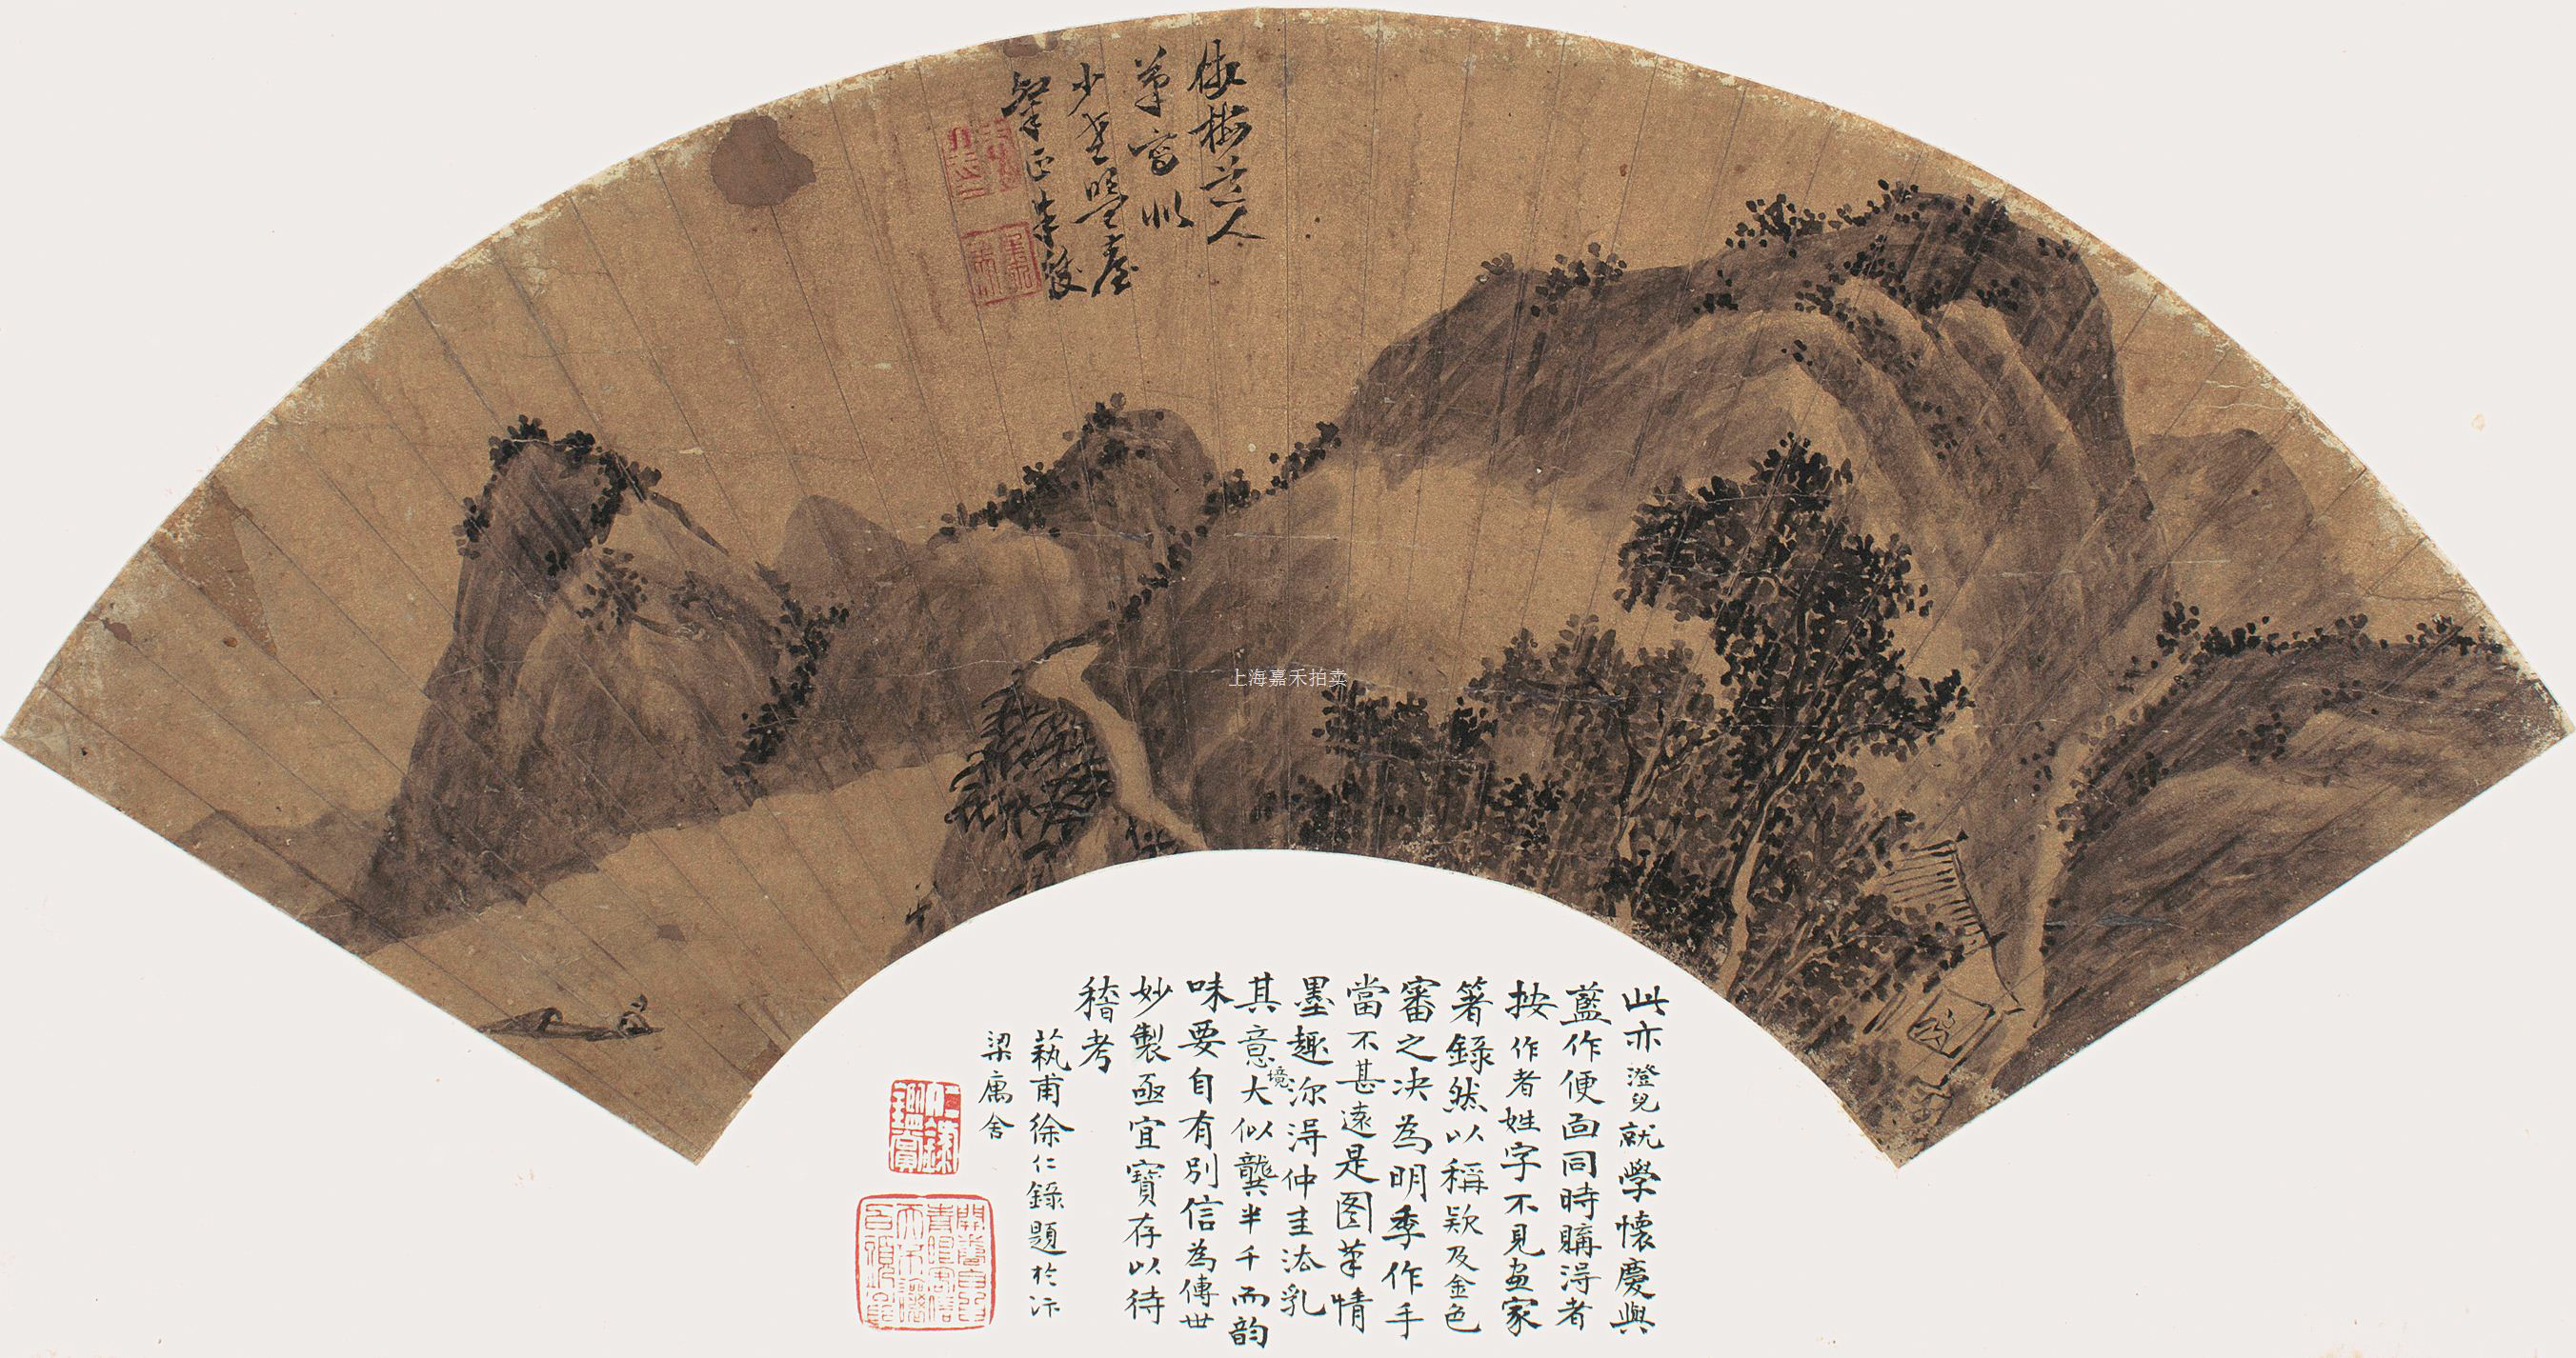 倣梅道人
筆寫似
盟臺
正
上海嘉禾拍卖
此亦澄兒就學懷慶與
藍作便面同時購淂者
按作者姓字不見畫家
箸錄然以稱欵及金色
審之决為明季作手
當不甚遠是图筆情
墨趣深淂仲圭法乳
其意境大似龔半千而韵
味要自有別信為傳世
妙製亟宜寶存以待
稽考
蓺甫徐仁錄題於汴
梁寓舍
仁錄鑑賞